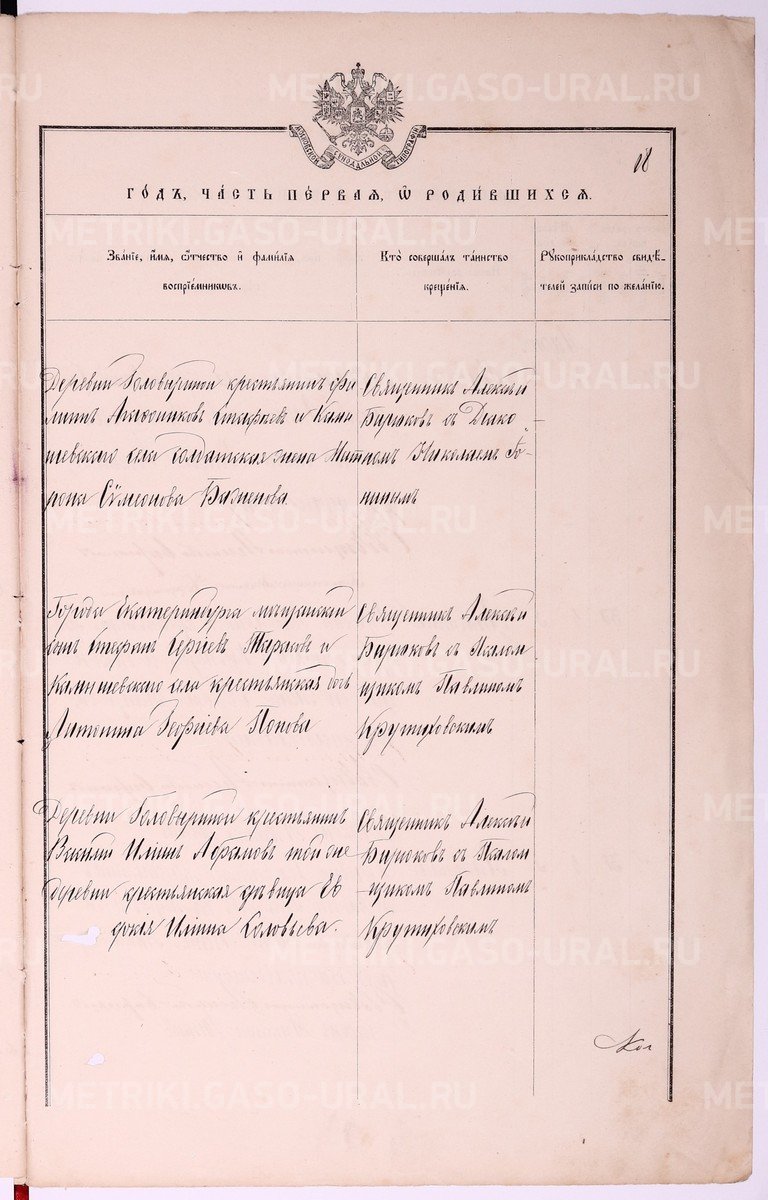 METRIKI.GASO-URAL.RU
МОСКОВСКОЙ СѴНОДАЛЬНОЙ ТИПОГРАФІИ
18
ГО́ДЪ, ЧА́СТЬ ПЕ́РВАЯ, Ѡ РОДИ́ВШИХСЯ.
Зва́нїе, и҆́мѧ, ѻ҆́тчество и҆ фами́лїѧ
воспрїе́мникѡвъ.
Кто̀ соверша́лъ та́инство
креще́нїѧ.
Рꙋкоприкла́дство свидѣ́-
телей за́писи по жела́нїю.
Деревни Головыриной крестьянинъ Фи
липпъ Стафѣевъ и Камы
шевскаго села солдатская жена Мат
рона Сѵмеонова Баженова.
Священникъ Алексѣй
Бирюковъ съ Діако-
номъ Николаемъ
Города Екатеринбурга мѣщанскій
сынъ Стефанъ Сергіевъ Тарасовъ и
Камышевскаго села крестьянская дочь
Антонина Георгіева Попова
Священникъ Алексѣй
Бирюковъ съ Псалом
щикомъ Павлиномъ
Крутиховскимъ
Деревни Головыриной крестьянинъ
Василій Ильинъ Абрамовъ той же
деревни крестьянская дѣвица Ев
докія Ильина Соловьева.
Священникъ Алексѣй
Бирюковъ съ Псалом
щикомъ Павлиномъ
Крутиховскимъ